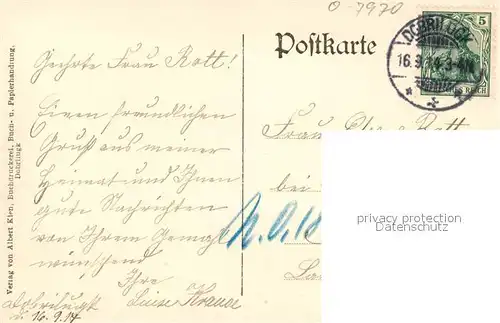 O-7970
Postkarte
DOBRILUGK
16.9.14. 3-4N
5
Geehrte Frau Rott!
Einen freundlichen
Gruß aus meiner
Heimat und Ihnen
gute Nachrichten
von Ihrem Gemahl
wünschend
Ihre
Luise Krause
Dobrilugk
d. 16.9.14
Frau Rott
bei
privacy protection
Datenschutz
Verlag von Albert Klen, Buchdruckerei, Buch- u. Papierhandlung,
Dobrilugk